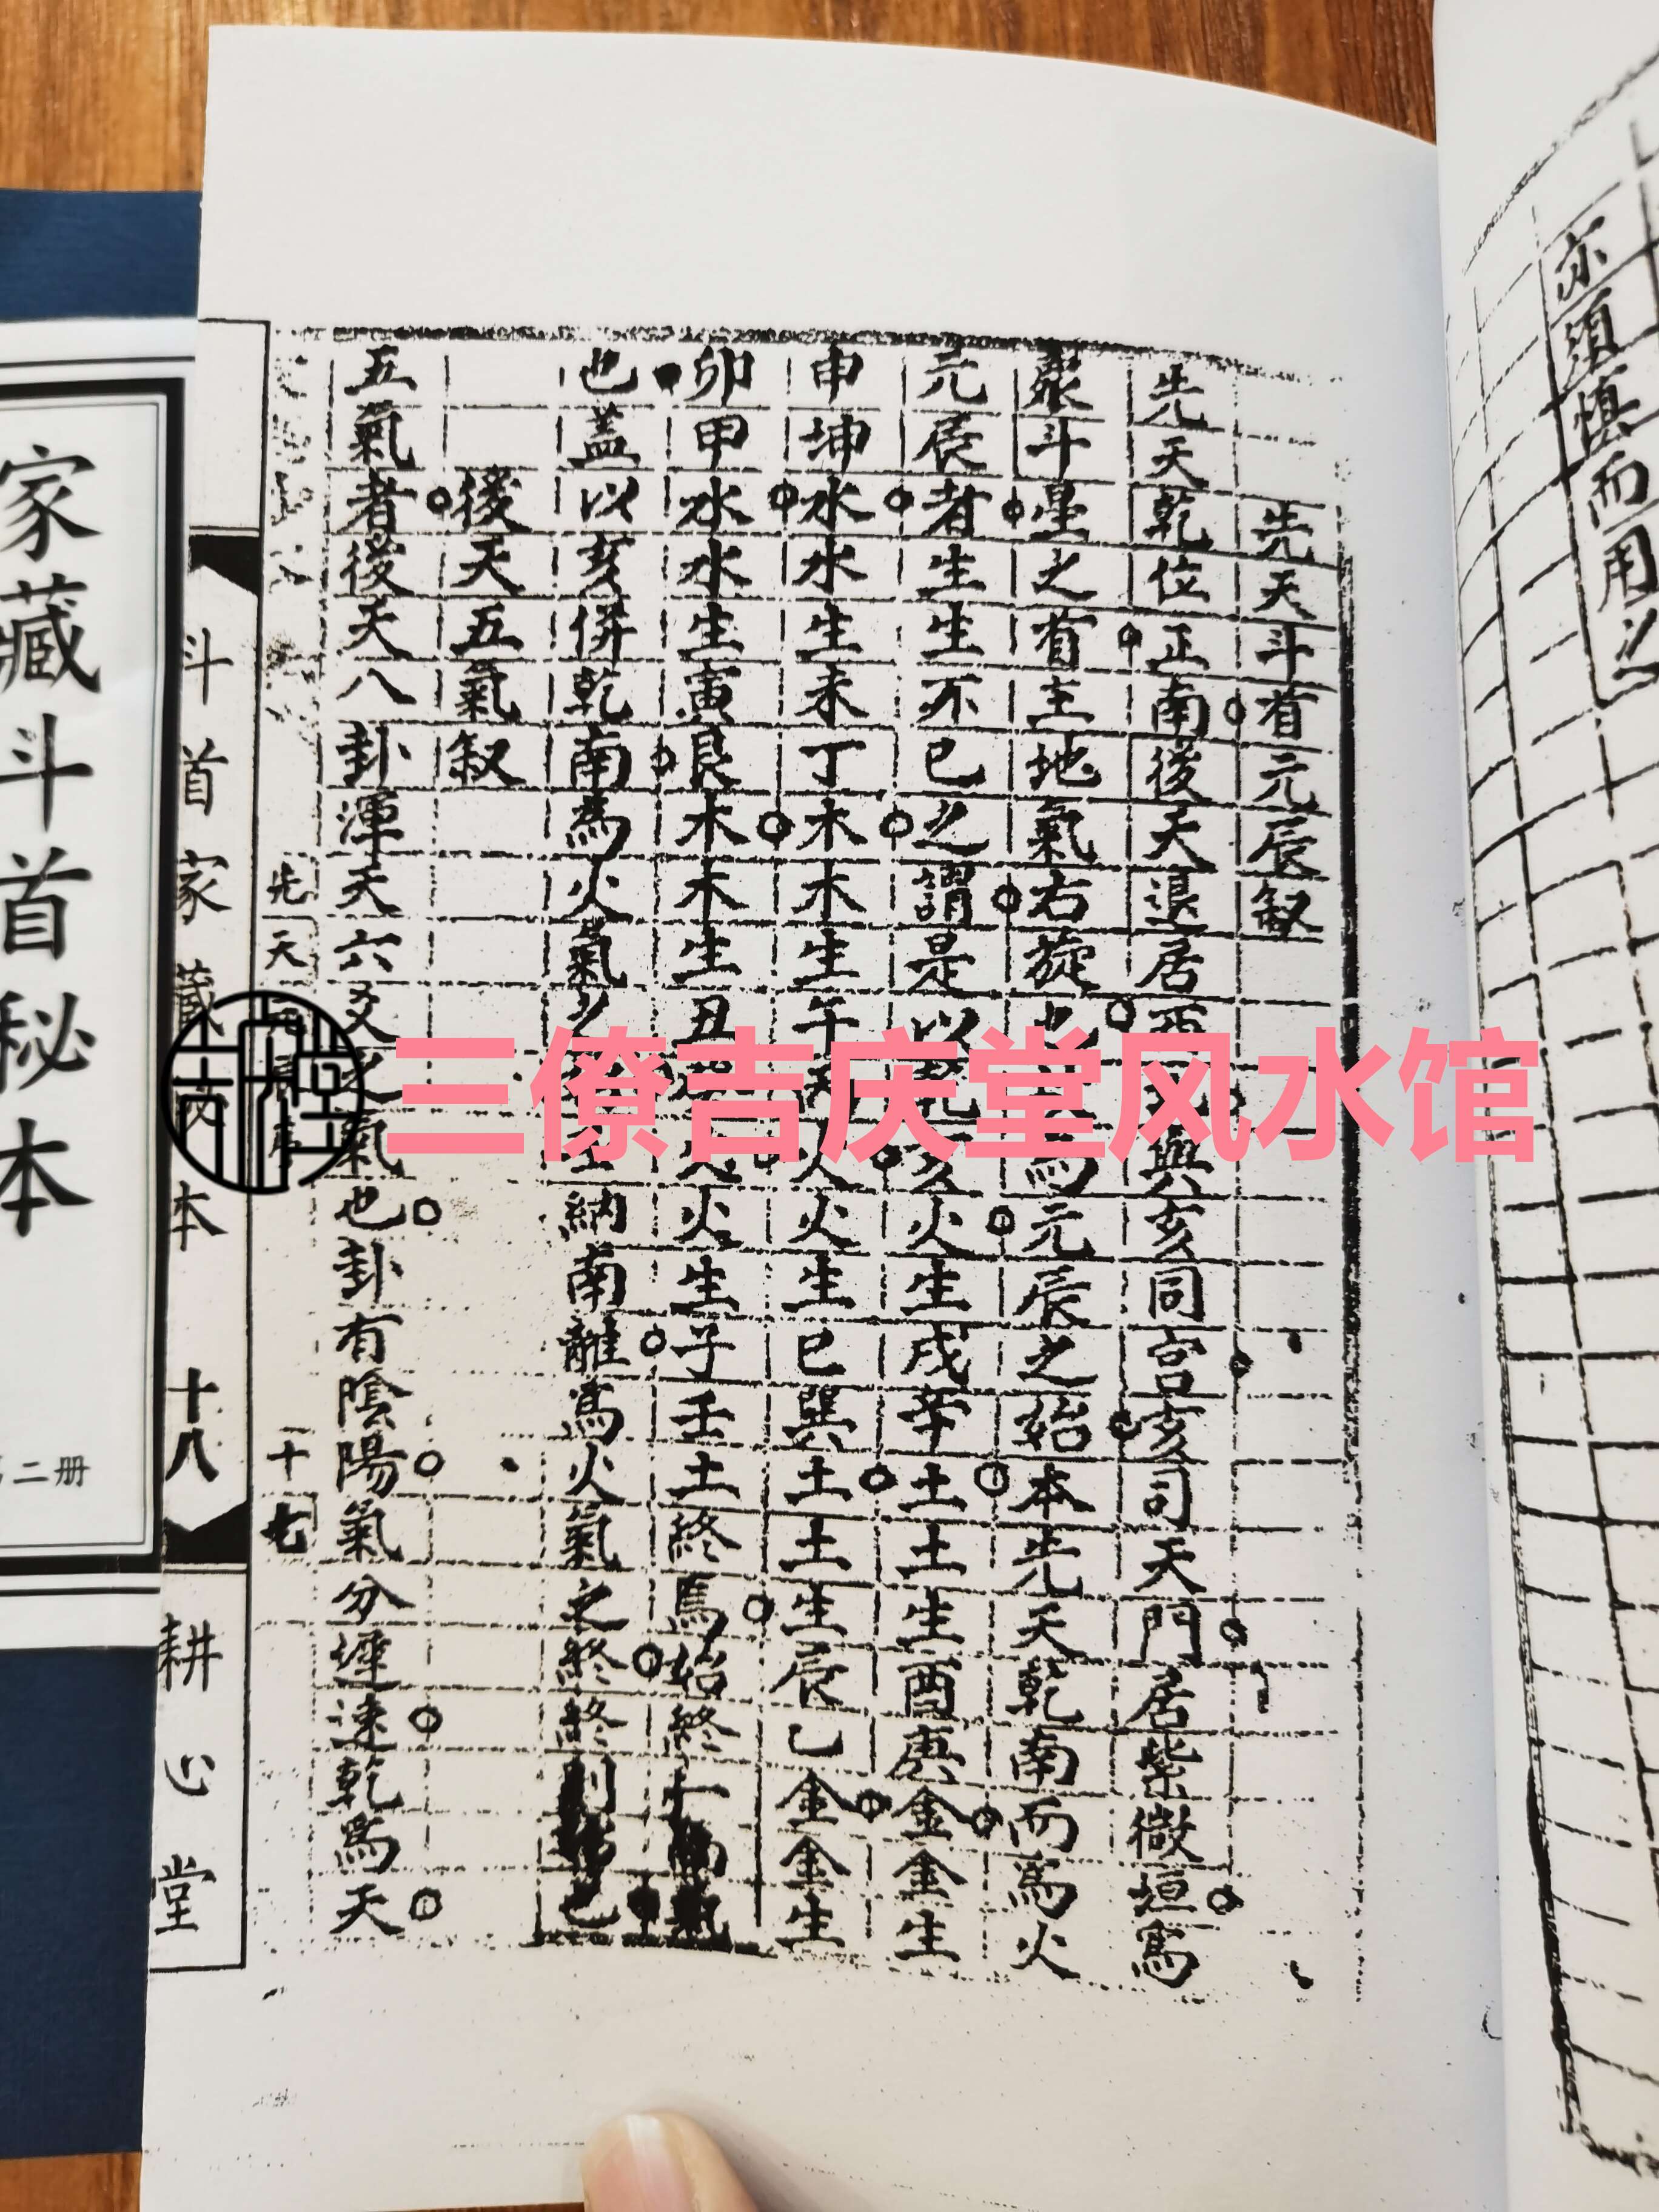 先天斗首元辰叙
先天乾位正南後天退居西 與亥同宮亥司天門居紫微垣為
衆斗星之首主地氣右旋 為元辰之始本先天乾南而為火
元辰者生生不已之謂是以乾亥火生戌辛土土生酉庚金金生
申坤水水生未丁木木生午 火火生巳巽土土生辰乙金金生
卯甲水水生寅艮木木生丑 火火生子壬土終焉始終
也蓋以亥併乾南為火氣之 納南離為火氣之終終則 也
後天五氣叙
五氣者後天八卦渾天六爻之氣也卦有陰陽氣分遲速乾為天
先天
十七
斗首家藏 本
十八
耕心堂
家藏斗首秘本
二册
亦須慎而用之
三僚吉庆堂风水馆